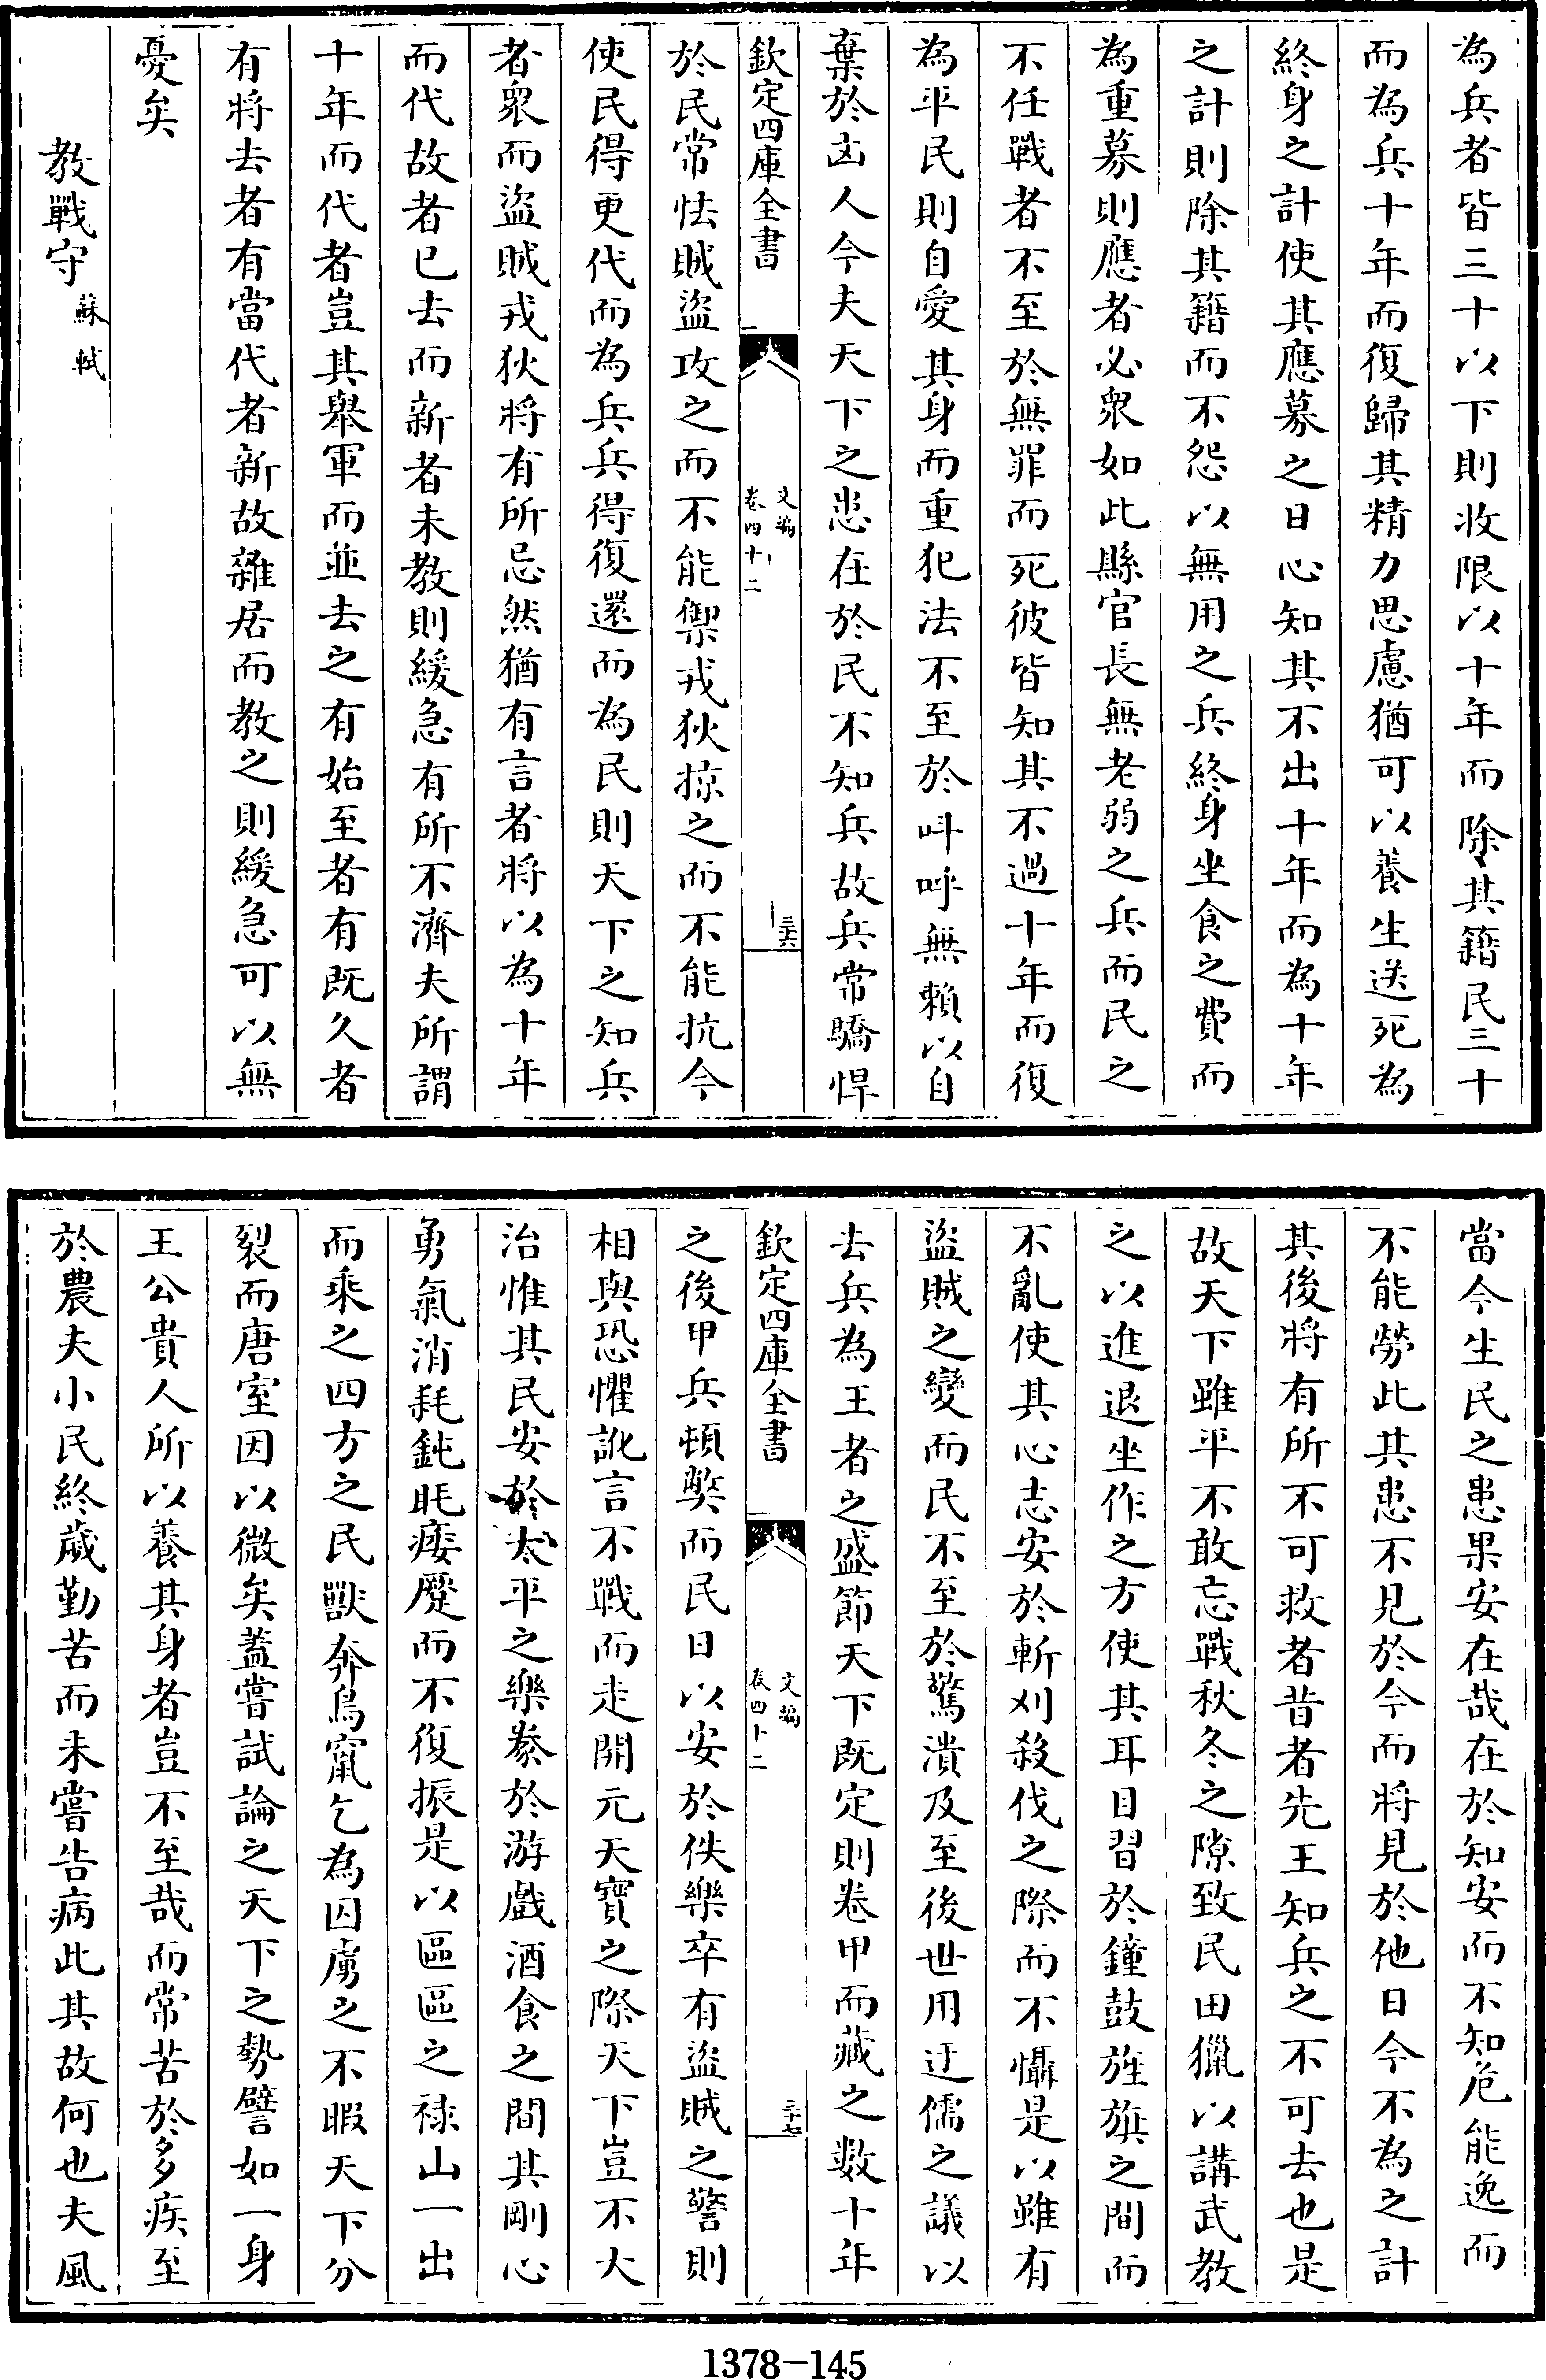 為兵者皆三十以下則收限以十年而除其籍民三十
而為兵十年而復歸其精力思慮猶可以養生送死為
終身之計使其應募之日心知其不出十年而為十年
之計則除其籍而不怨以無用之兵終身坐食之費而
為重募則應者必衆如此縣官長無老弱之兵而民之
不任戰者不至於無罪而死彼皆知其不過十年而復
為平民則自愛其身而重犯法不至於呌呼無賴以自
棄於凶人今夫天下之患在於民不知兵故兵常驕悍
欽定四庫全書
文編
卷四十二
三十六
於民常怯賊盜攻之而不能禦戎狄掠之而不能抗今
使民得更代而為兵兵得復還而為民則天下之知兵
者衆而盜賊戎狄將有所忌然猶有言者將以為十年
而代故者已去而新者未教則緩急有所不濟夫所謂
十年而代者豈其舉軍而並去之有始至者有既久者
有將去者有當代者新故雜居而教之則緩急可以無
憂矣
教戰守
蘇軾
當今生民之患果安在哉在於知安而不知危能逸而
不能勞此其患不見於今而將見於他日今不為之計
其後將有所不可救者昔者先王知兵之不可去也是
故天下雖平不敢忘戰秋冬之隙致民田獵以講武教
之以進退坐作之方使其耳目習於鐘鼓旌旗之間而
不亂使其心志安於斬刈殺伐之際而不懾是以雖有
盜賊之變而民不至於驚潰及至後世用迂儒之議以
去兵為王者之盛節天下既定則卷甲而藏之數十年
欽定四庫全書
文編
卷四十二
三十七
之後甲兵頓弊而民日以安於佚樂卒有盜賊之警則
相與恐懼訛言不戰而走開元天寶之際天下豈不大
治惟其民安於太平之樂豢於游戲酒食之間其剛心
勇氣消耗鈍眊痿蹷而不復振是以區區之祿山一出
而乘之四方之民獸奔鳥竄乞為囚虜之不暇天下分
裂而唐室因以微矣蓋嘗試論之天下之勢譬如一身
王公貴人所以養其身者豈不至哉而常苦於多疾至
於農夫小民終歲勤苦而未嘗告病此其故何也夫風
1378-145